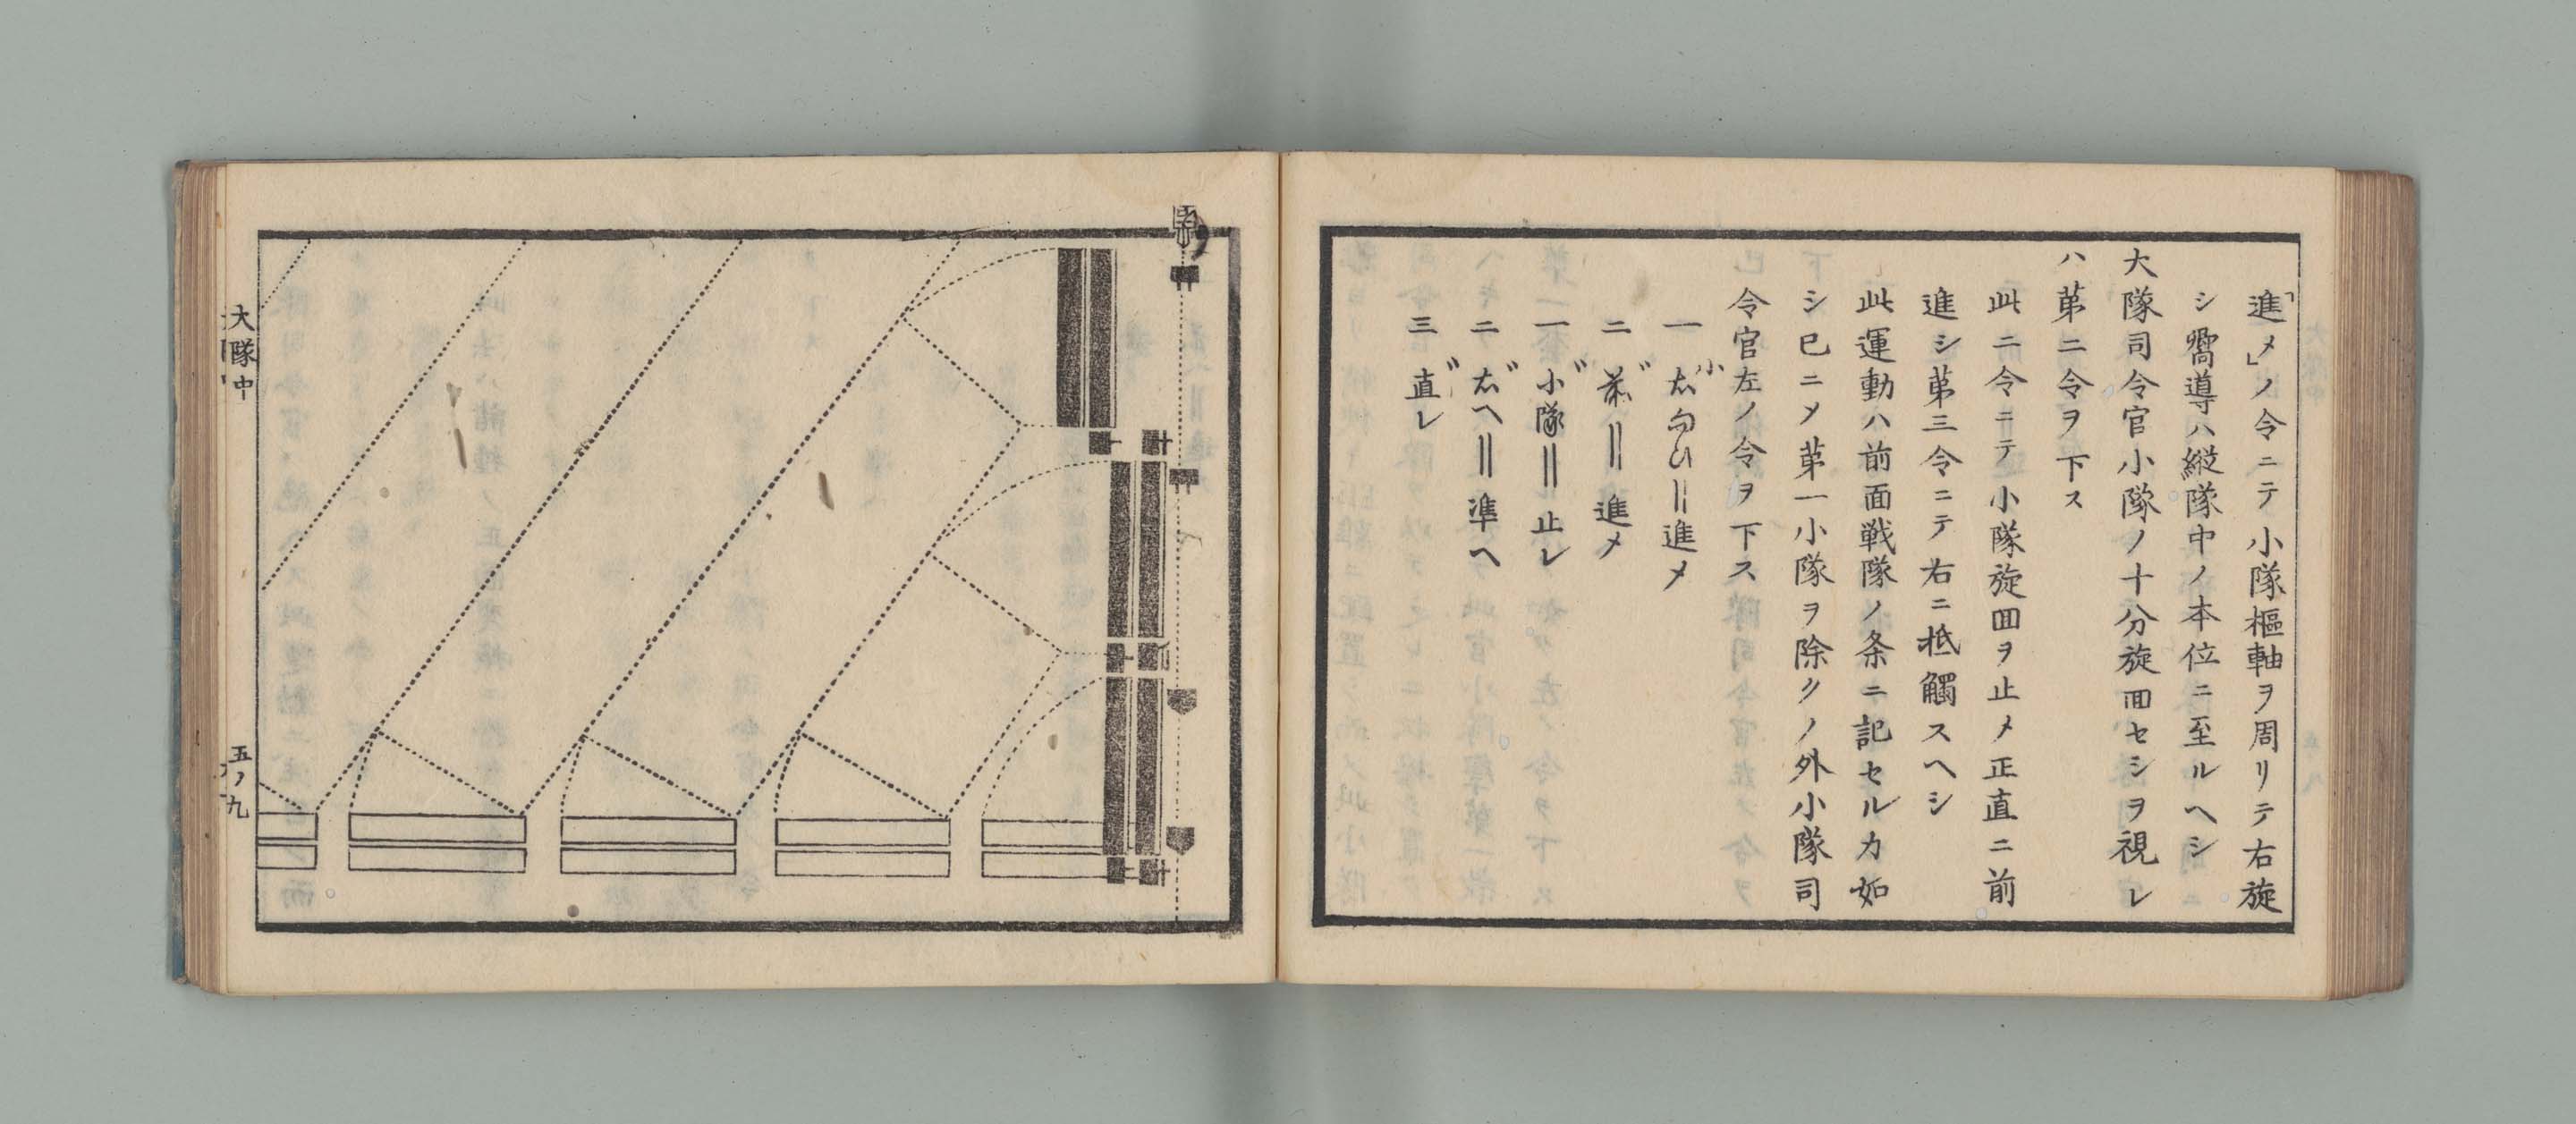 「進メ」ノ令ニテ小隊樞軸ヲ周リテ右旋
シ嚮導ハ縱隊中ノ本位ニ至ルヘシ
大隊司令官小隊ノ十分旋回セシヲ視レ
ハ第二令ヲ下ス
此二令ニテ小隊旋回ヲ止メ正直ニ前
進シ第三令ニテ右ニ抵觸スヘシ
此運動ハ前面戦隊ノ条ニ記セルカ如
シ已ニメ第一小隊ヲ除クノ外小隊司
令官左ノ令ヲ下ス
一 小右向ひ‖進メ
二 〃前‖進メ
一 〃小隊‖止レ
二 〃右へ‖準へ
三 〃直レ
大隊中
五ノ九